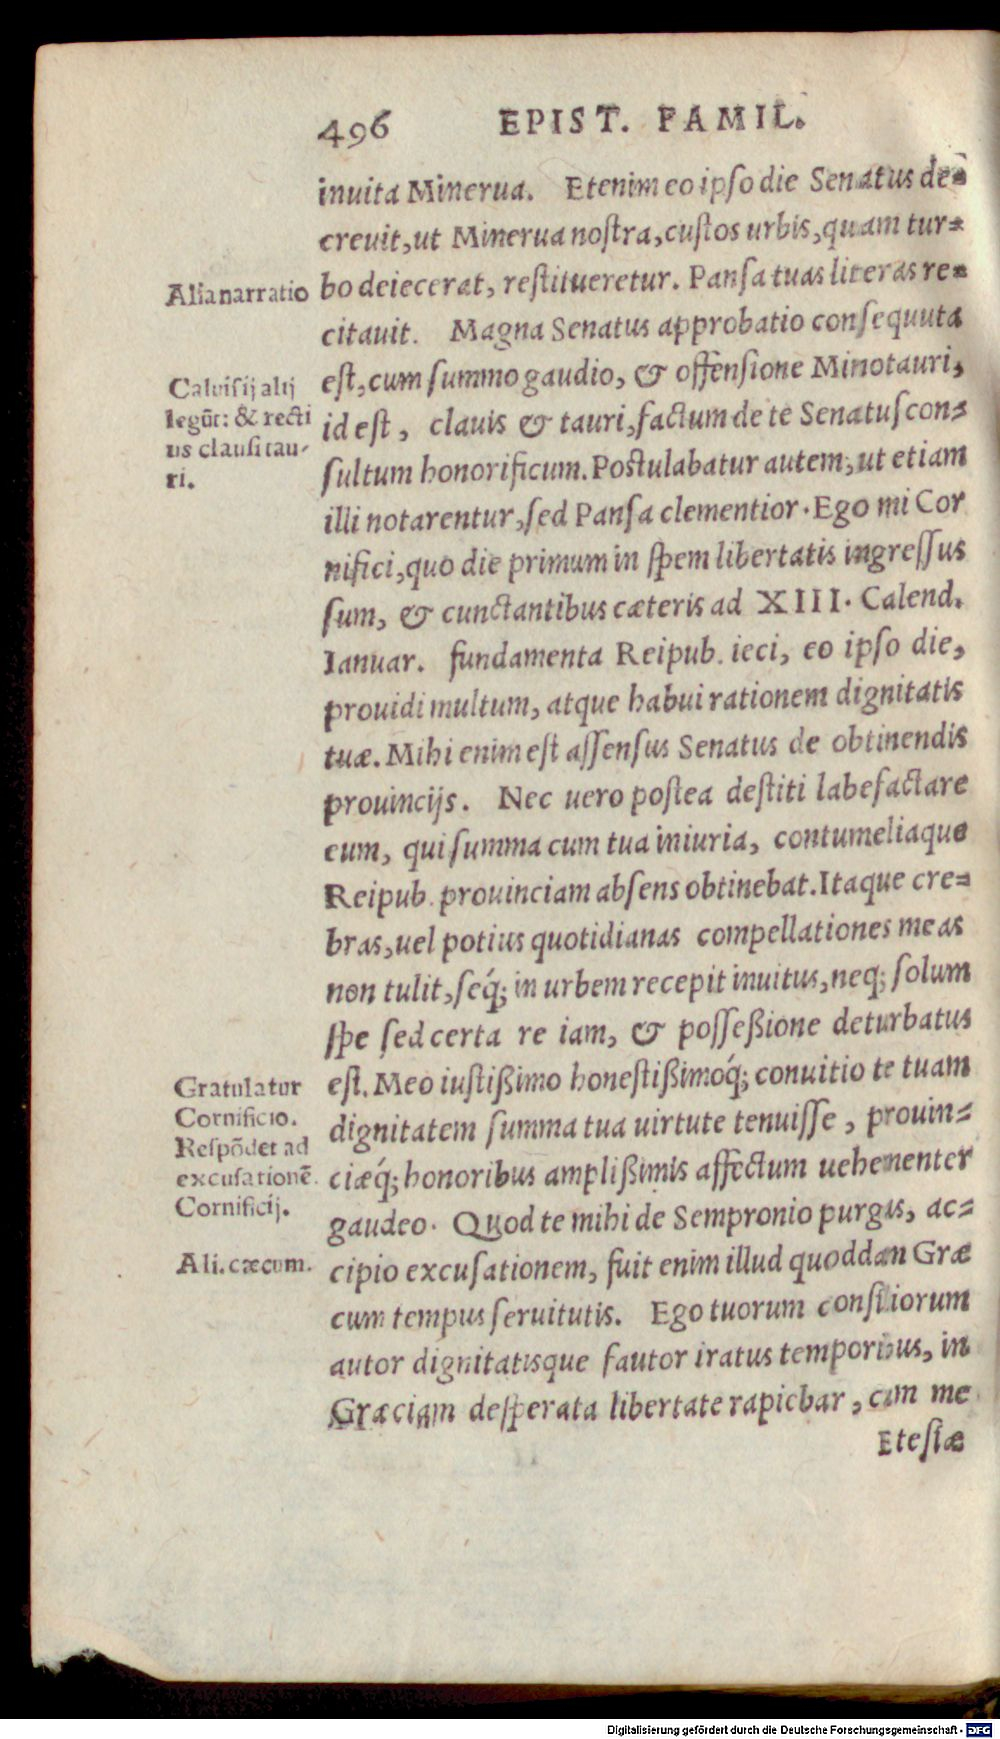 496 EPIST. FAMIL.
inuita Minerua. Etenim eo ipso die Senatus de-
creuit, ut Minerua nostra, custos urbis, quam tur-
Alia narratio
bo deiecerat, restitueretur. Pansa tuas literas re-
citauit. Magna Senatus approbatio consequuta
Caluisij alij
legũt: & recti
us clausi tau-
ri.
est, cum summo gaudio, & offensione Minotauri,
id est, clauis & tauri, factum de te Senatuscon-
sultum honorificum. Postulabatur autem, ut etiam
illi notarentur, sed Pansa clementior. Ego mi Cor
nifici, quo die primum in spem libertatis ingressus
sum, & cunctantibus cæteris ad XIII. Calend.
Ianuar. fundamenta Reipub. ieci, eo ipso die,
prouidi multum, atque habui rationem dignitatis
tuæ. Mihi enim est assensus Senatus de obtinendis
prouincijs. Nec uero postea destiti labefactare
eum, qui summa cum tua iniuria, contumeliaque
Reipub. prouinciam absens obtinebat. Itaque cre-
bras, uel potius quotidianas compellationes meas
non tulit, seq́; in urbem recepit inuitus, neq; solum
spe sed certa re iam, & posseßione deturbatus
Gratulatur
Cornificio.
Respõdet ad
excusationẽ
Cornificij.
est. Meo iustißimo honestißimoq́; conuitio te tuam
dignitatem summa tua uirtute tenuisse, prouin-
ciæq́; honoribus amplißimis affectum uehementer
gaudeo. Quod te mihi de Sempronio purgas, ac-
Ali. cæcum.
cipio excusationem, fuit enim illud quoddan Græ
cum tempus seruitutis. Ego tuorum consiliorum
autor dignitatisque fautor iratus temporibus, in
Græciam desperata libertate rapiebar, cum me
Etesiæ
Digitalisierung gefördert durch die Deutsche Forschungsgemeinschaft - DFG